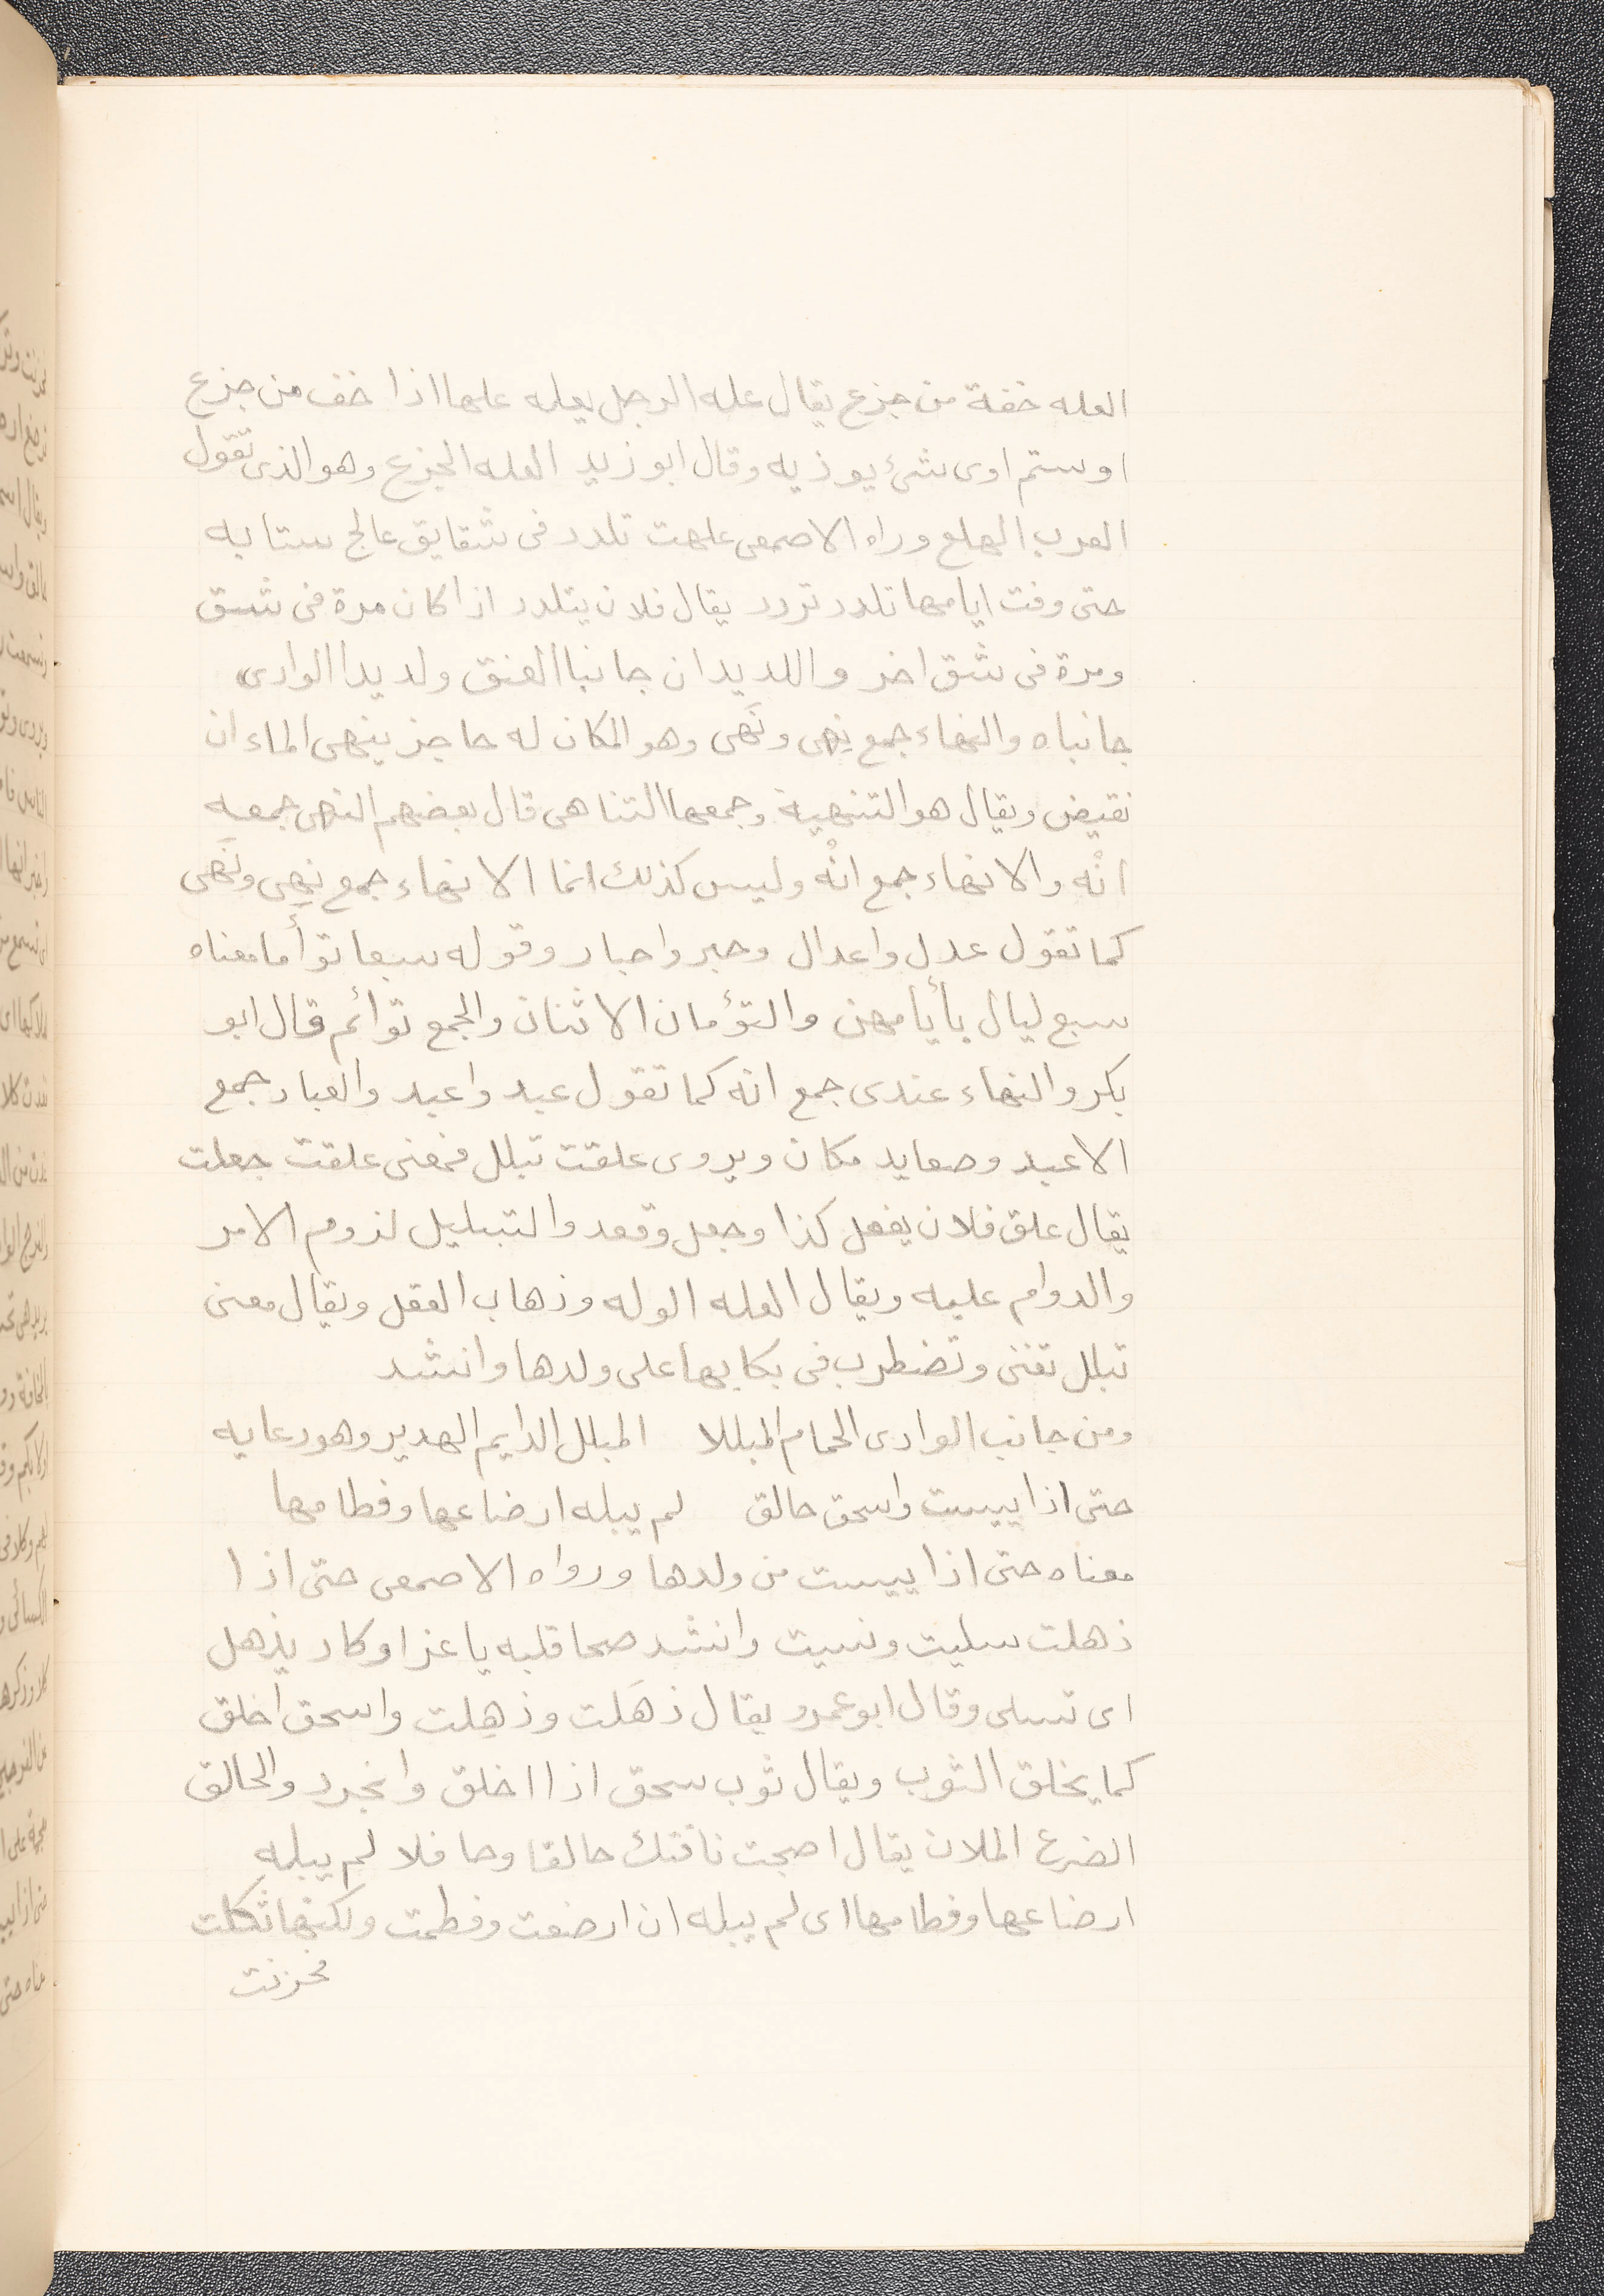 العله خفة من جزع يقال عله الرجل يعله علها اذا خف من جزع
او ستم اوى شئ يوذيه وقال ابو زيد العله الجزع وهو الذى تقول
العرب الهلع وراه الاصمعى علهت تلدد فى شقايق عالج ستايه
حتى وفت ايامها تلدد تردد يقال فلان يتلدد اذا كان مرة فى شق
ومرة فى شق اخر واللديدان جانبا العنق ولديدا الوادى
جانباه والنهاء جمع نِهى ونَهى وهو المكان له حاجز ينهى الماء ان
نقيض ويقال هو التنهية وجمعها التناهى قال بعضهم النهى جمعه
انْه والانهاء جمع انْه وليس كذلك انما الانهاء جمع نِهى ونَهى
كما تقول عدل واعدال وحبر واحبار وقوله سبعا توأما معناه
سبع ليال بأيامهن والتؤمان الاثنان والجمع توائم قال ابو
بكر والنهاء عندى جمع انه كما تقول عبد واعبد والعباد جمع
الاعبد وصعايد مكان ويروى علقت تبلل فمعنى علقت جعلت
يقال علق فلان يفعل كذا وجعل وقعد والتبليل لزوم الامر
والدوام عليه ويقال العله الوله وذهاب العقل ويقال معنى
تبلل تغنى وتضطرب فى بكايها على ولدها وانشد
ومن جانب الوادى الحمام المبللا المبلل الدايم الهدير وهو دعايه
حتى اذا يبست واسحق حالق لم يبله ارضاعها وفطامها
معناه حتى اذا يبست من ولدها ورواه الاصمعى حتى اذا
ذهلت سليت ونسيت وانشد صحا قلبه يا عزا وكاد يذهل
اى تسلى وقال ابو عمرو يقال ذهَلت وذهِلت واسحق اخلق
كما يخلق الثوب ويقال ثوب سحق اذا اخلق وانجرد والحالق
الضرع الملان يقال اصبحت ناقتك حالقا وحافلا لم يبله
ارضاعها وفطامها اى لم يبله ان ارضعت وفطمت ولكنها ثكلت
فحزنت